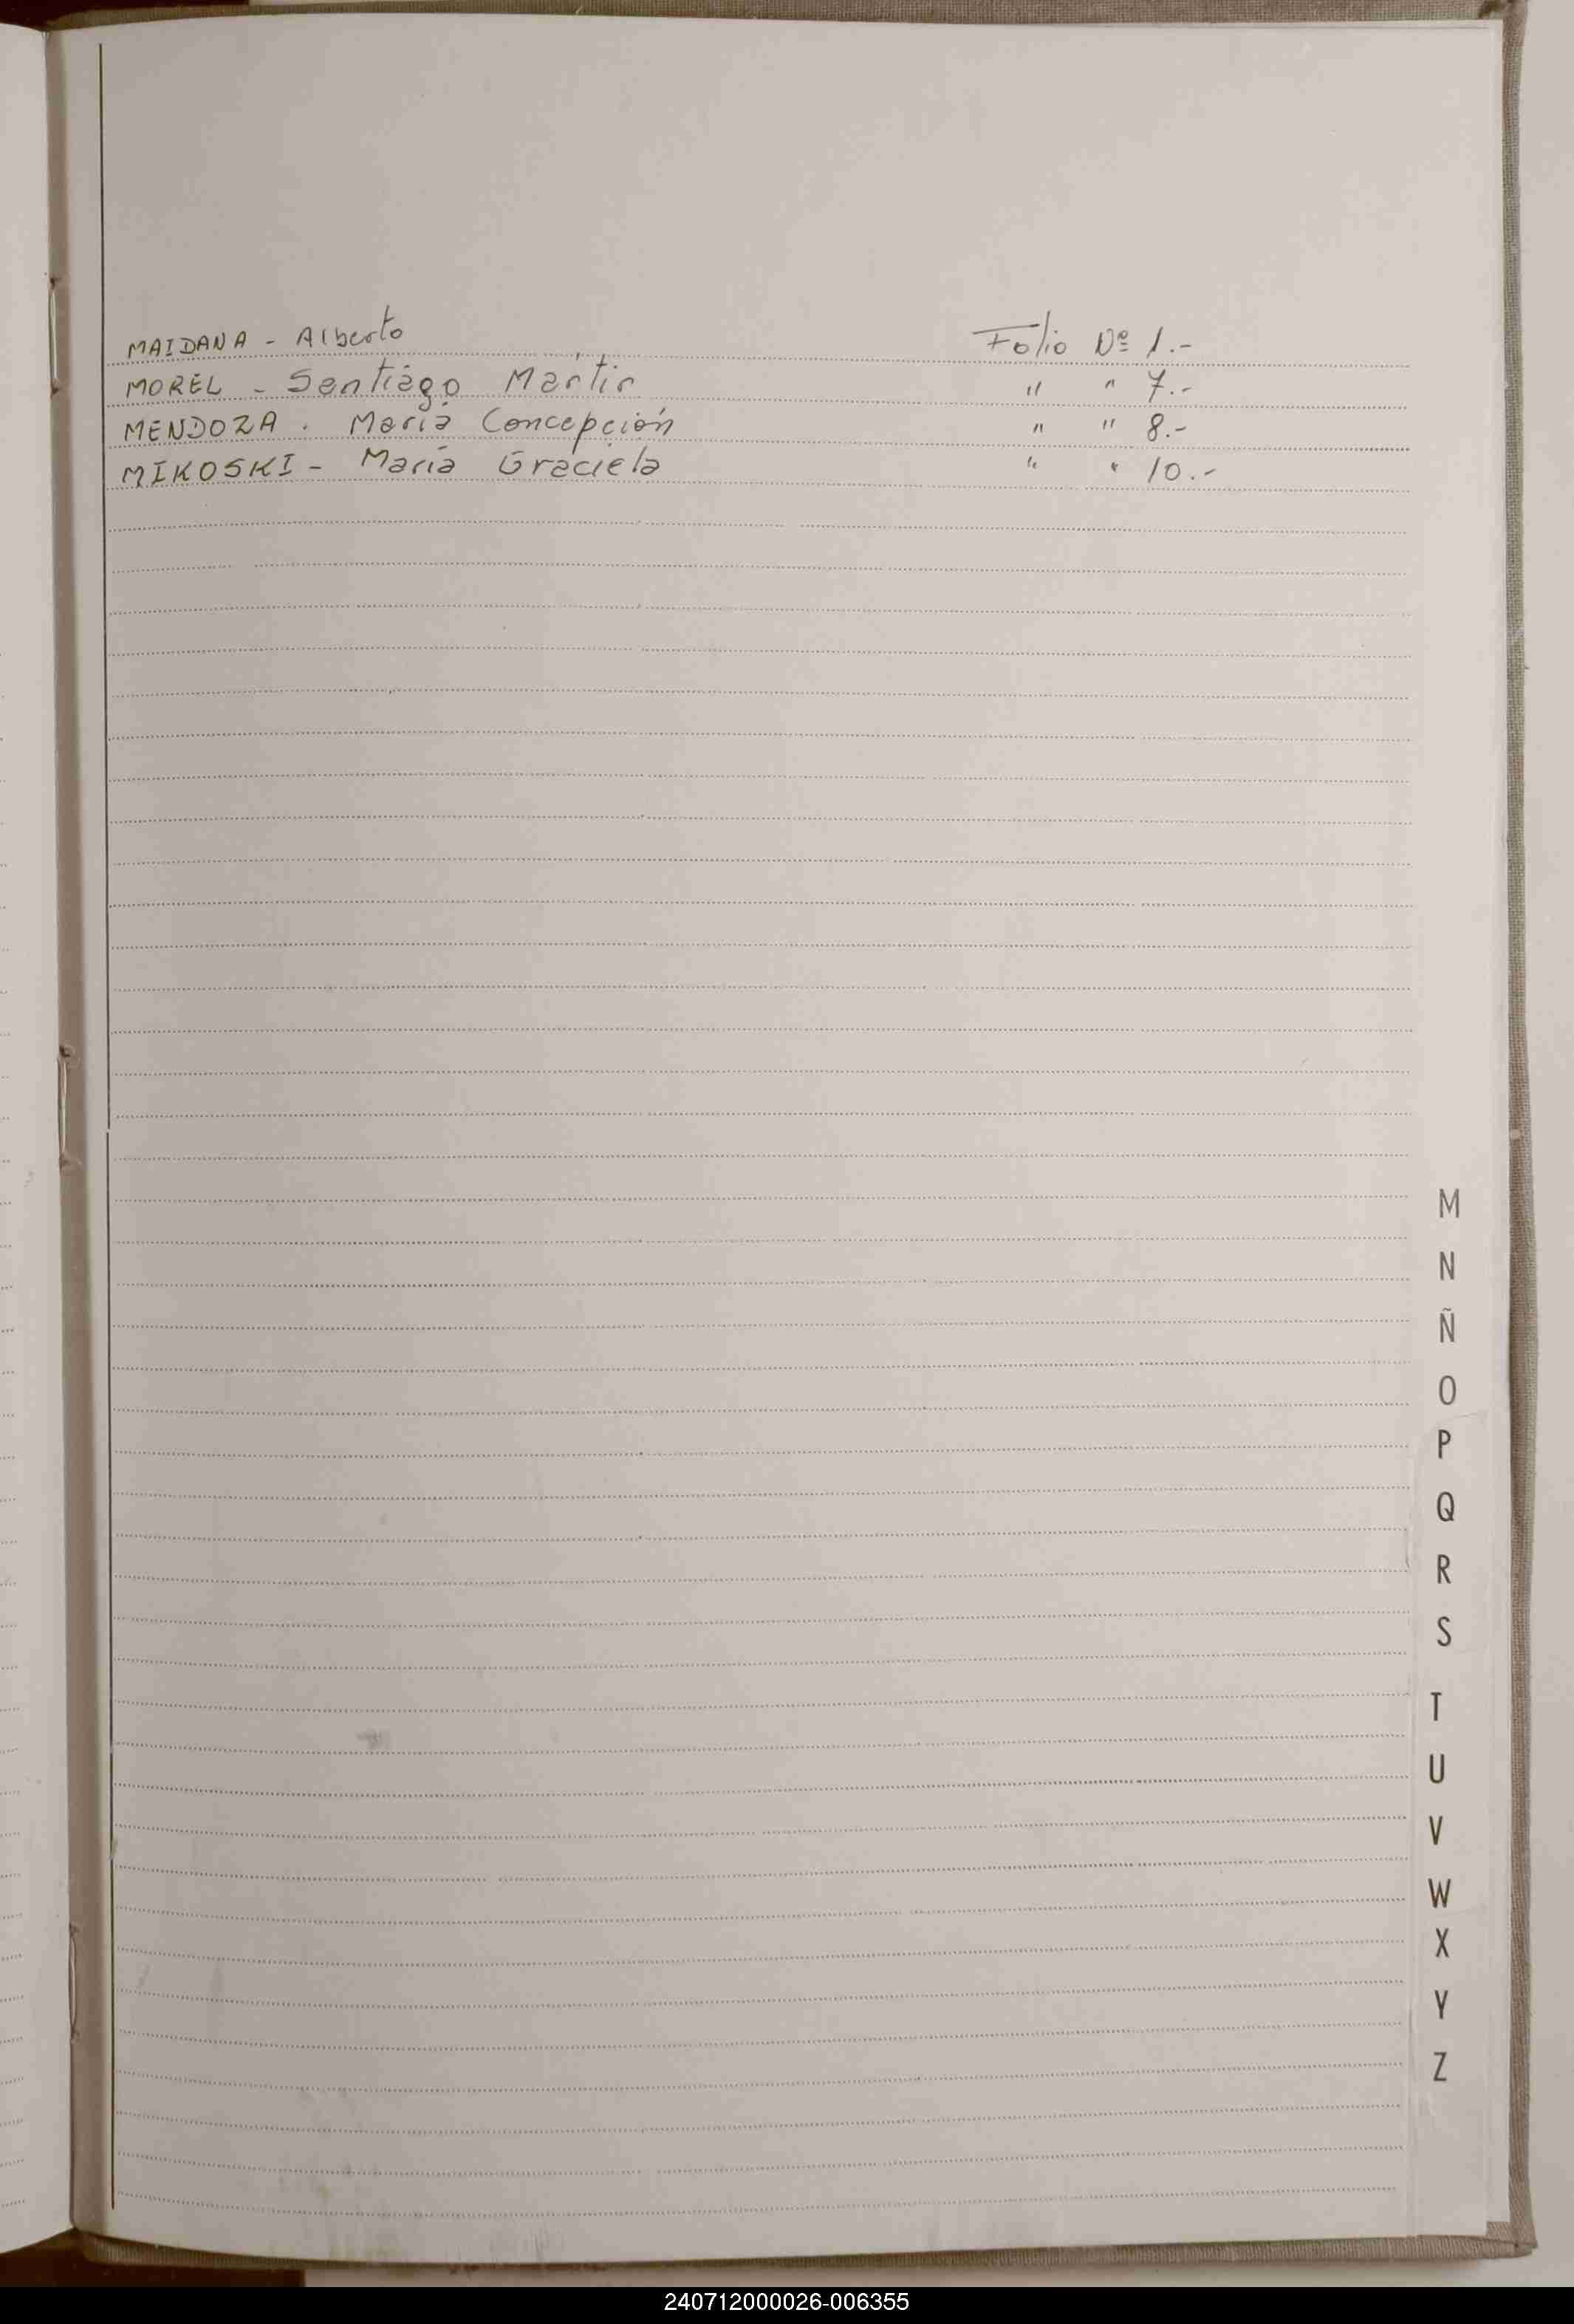 MAIDANA - Alberto Folio Nº 1.-
MOREL - Santiago Martin " " 7.-
MENDOZA . María Concepción " " 8.-
MIKOSKI - María Graciela " " 10.-
M
N
Ñ
O
P
Q
R
S
T
U
V
W
X
Y
Z
240712000026-006355